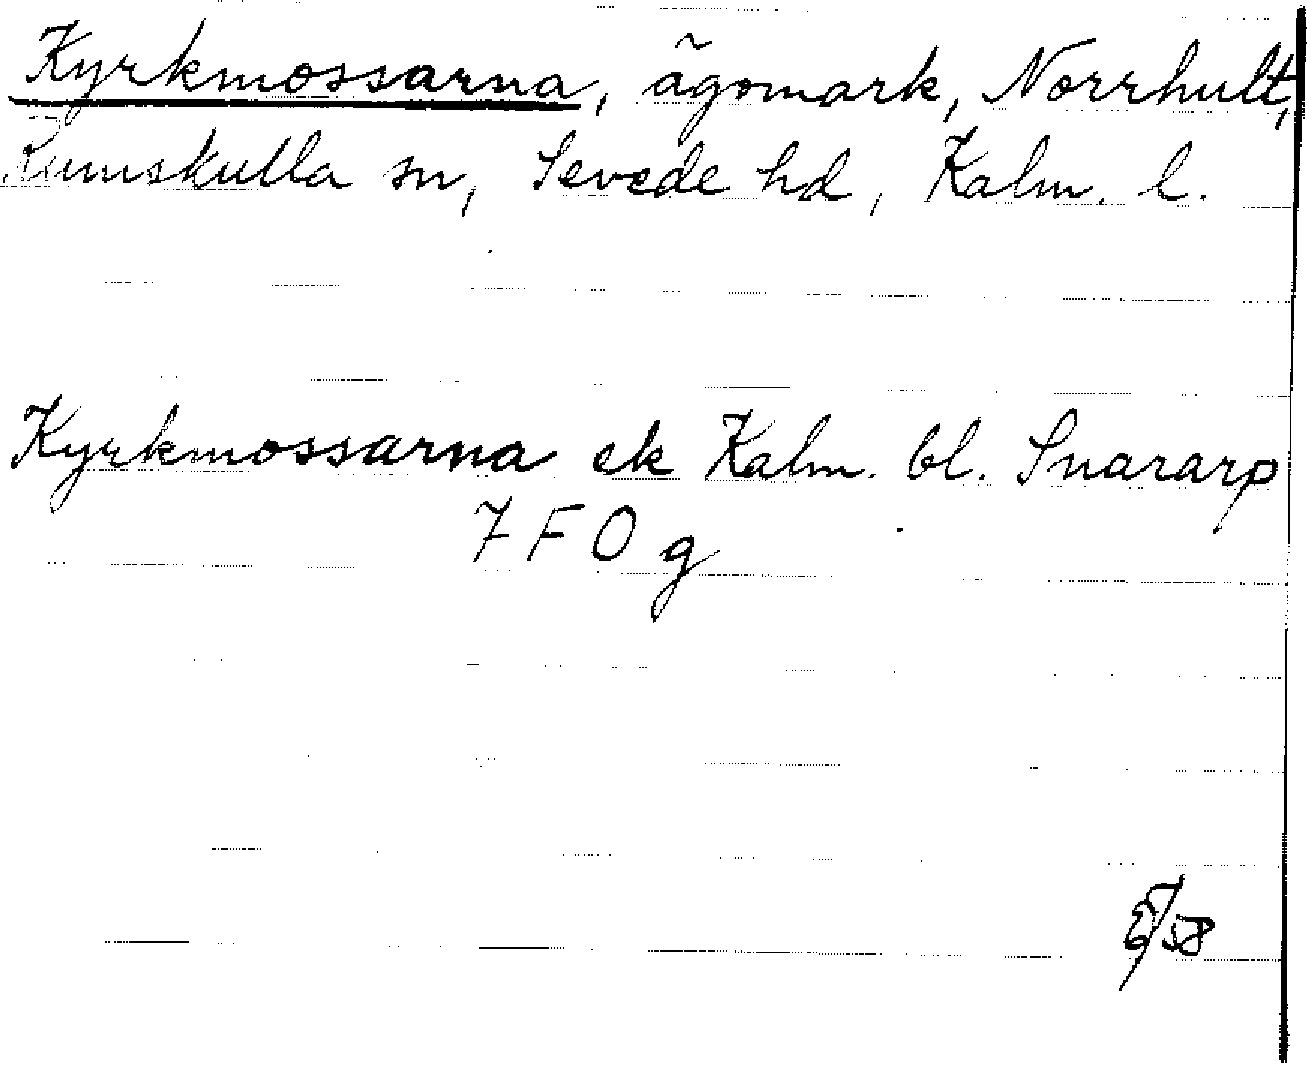 Kyrkmossarna, ägomark, Norrhult,
Rumskulla sn, Sevede hd, Kalm. l.
Kyrkmossarna ek Kalm. bl. Snararp
7 F O g